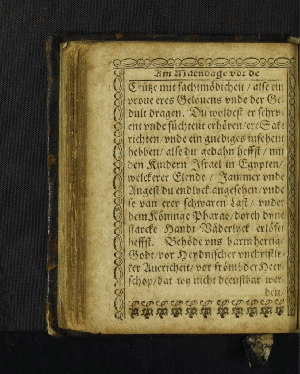 Am Maendage vor de
Crütze mit sachtmödicheit / alse ein
prove eres Gelovens vnde der Ge-
dult dragen. Du woldest er schry-
ent vnde süchtent erhören / ere Sake
richten / vnde ein gnediges insehent
hebben / alse du gedahn heffst / mit
den Kindern Israel in Egypten /
welckerer Elende / Jammer vnde
Angest du endlick angesehen / vnde
se van erer schwaren Last / vnder
dem Köninge Pharao / dorch dyne
starcke Handt Väderlyck erlöset
heffst. Behöde vns barmhertige
Godt / vor Heydnischer vnchristli-
ker Avericheit / vor frömbder Heer-
schop / dat wy nicht deenstbar wer-
den /